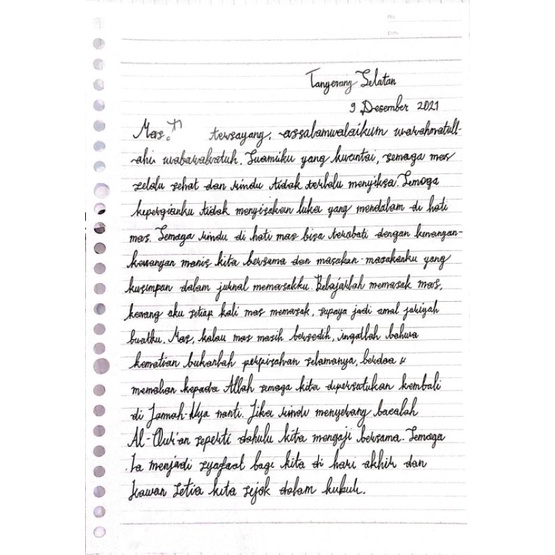 Tangerang Selatan
9 Desember 2021
Mas. tersayang, assalamualaikum warahmatull-
ahi wabarakatuh. Suamiku yang kucintai, semoga mas
selalu sehat dan rindu tidak terlalu menyiksa. Semoga
kepergianku tidak menyisakan luka yang mendalam di hati
mas. Semoga rindu di hati mas bisa terobati dengan kenangan-
kenangan manis kita bersama dan masakan-masakanku yang
kusimpan dalam jurnal memasakku. Belajarlah memasak mas,
kenang aku setiap kali mas memasak, supaya jadi amal jariyah
buatku. Mas, kalau mas masih bersedih, ingatlah bahwa
kematian bukanlah perpisahan selamanya berdoa &
memohon kepada Allah semoga kita dipersatukan kembali
di Jannah-Nya nanti. Jika rindu menyerang bacalah
Al-Qur'an seperti dahulu kita mengaji bersama. Semoga
Ia menjadi syafaat bagi kita di hari akhir dan
kawan setia kita sejak dalam kubur.